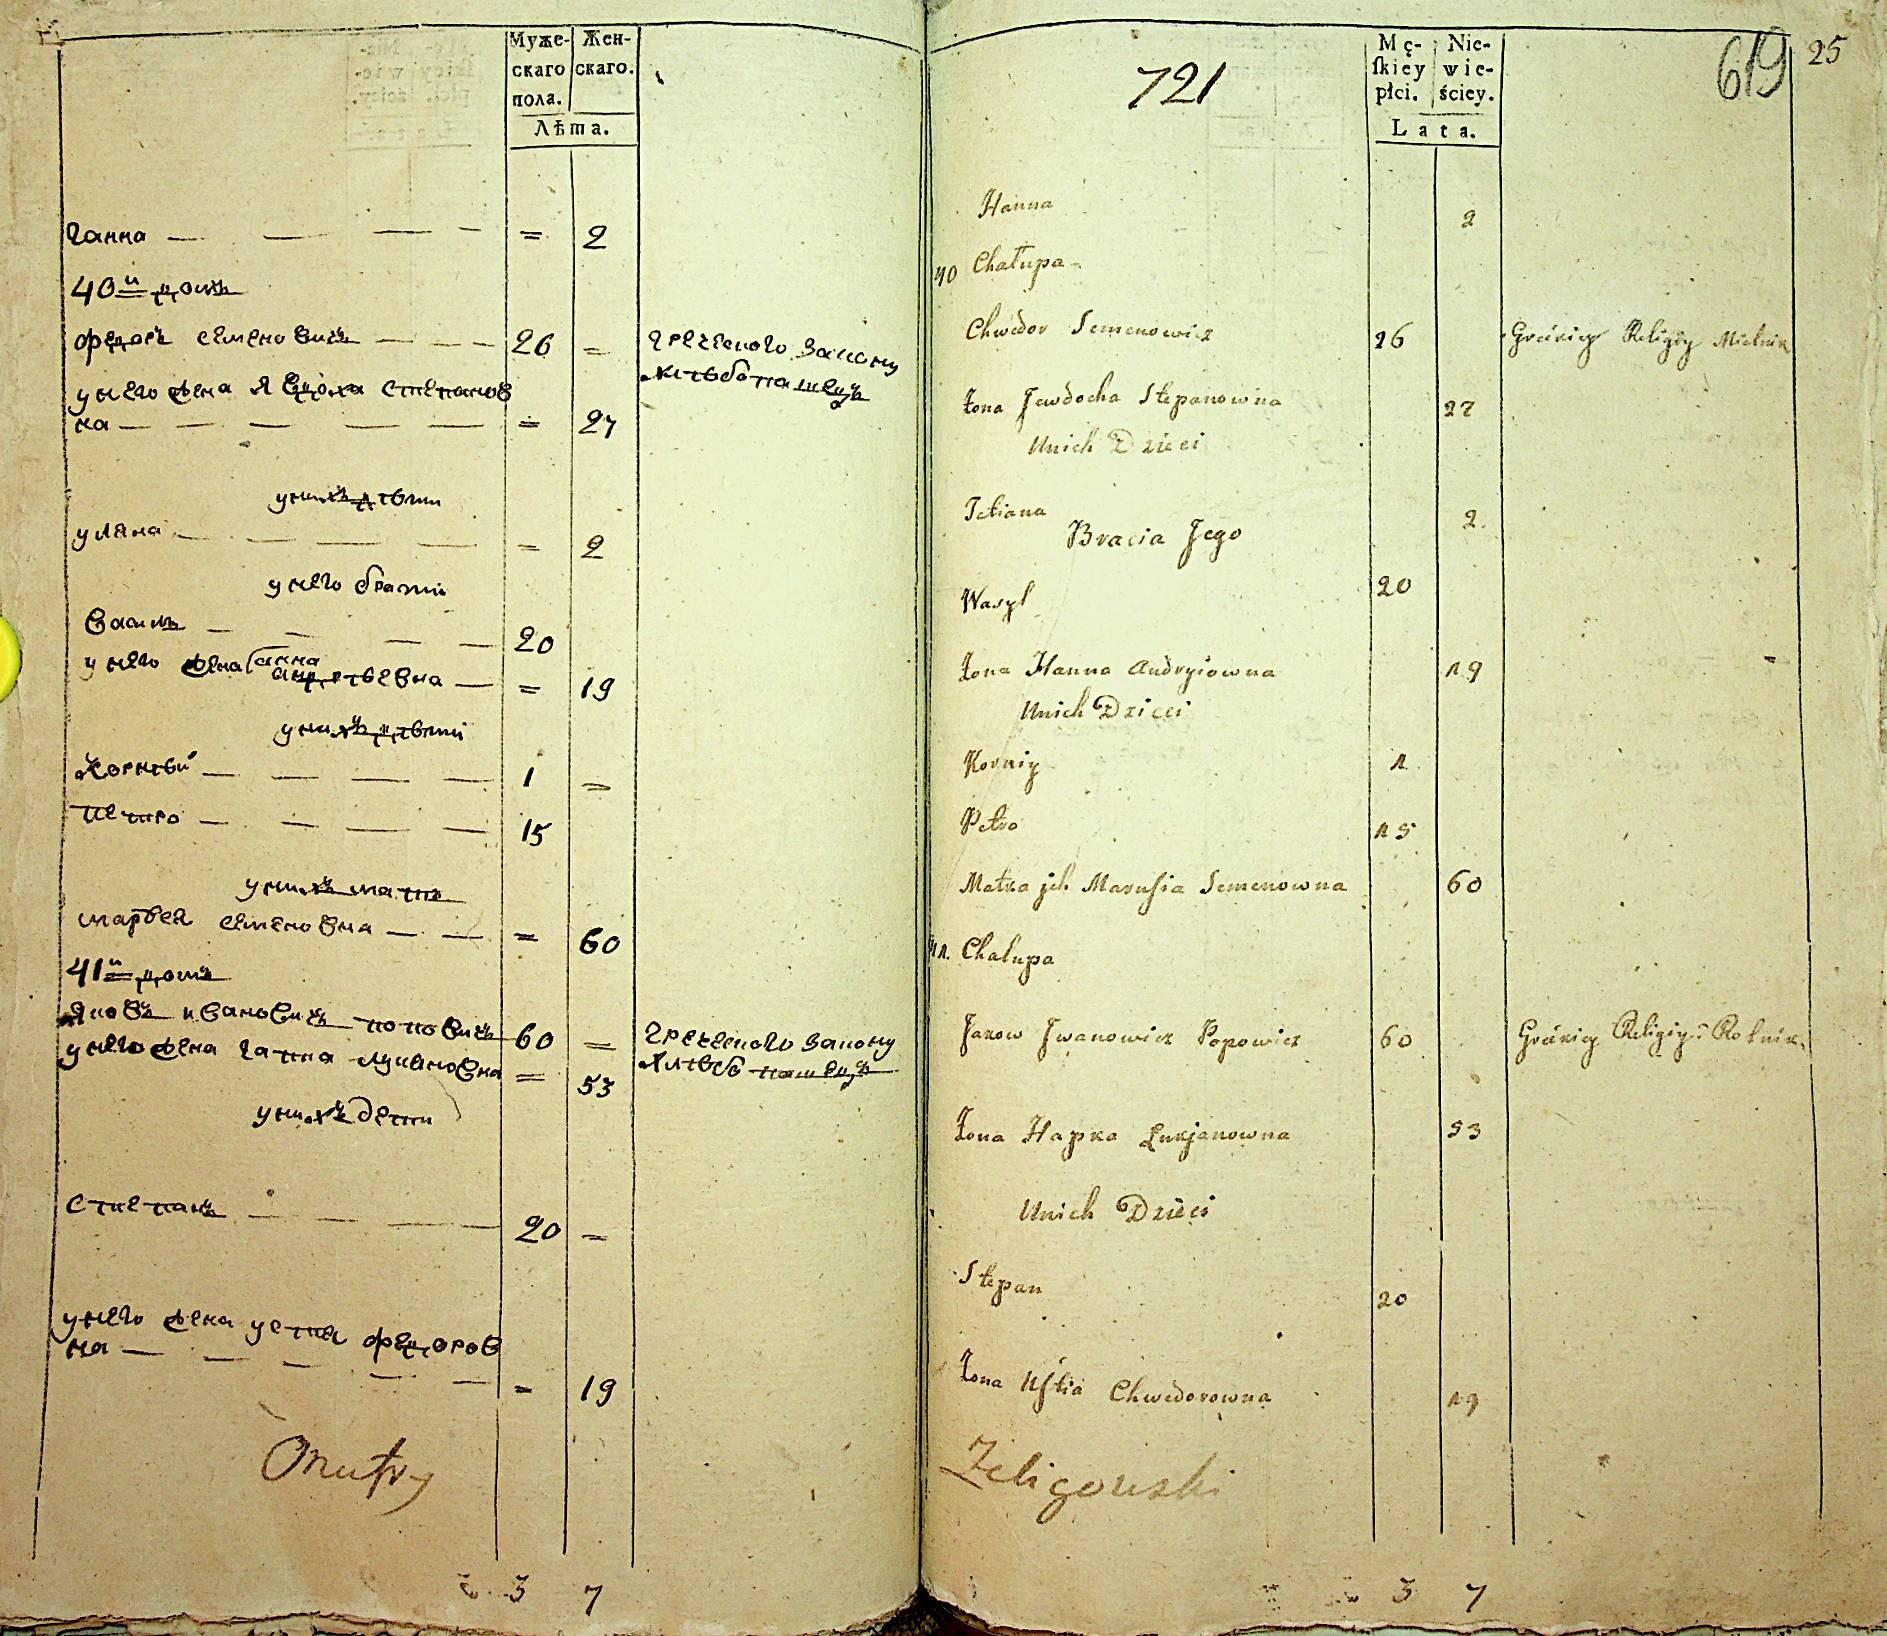 Муже-
скаго
пола.
Жен-
скаго.
Лѣта.
ганна — — — — = 2
40й домъ
федоръ семеновичъ — — — 26 = греческого закону
хлѣбопашецъ
унего жена Явдоха степанов
на — — — — — = 27
унихъ дѣти
уляна — — — — = 2
унего брати
василь — — — — 20
унего жена ганна
андрѣевна — = 19
унихъ дѣти
Корнѣй — — — — 1 =
петро — — — — 15
унихъ мать
марѳея семеновна — — = 60
41й домъ
Яковъ ивановичъ поповичъ 60 = греческого закону
унего жена гапка лукяновна = 53 хлѣбопашецъ
унихъ дети
степанъ — — — — 20 =
унего жена устия федоров
на — — — — — = 19
3 7
721
619 25
Mę-
ſkiey
płci.
Nie-
wie-
ściey.
Lata.
Hanna 2
40 Chałupa
Chwedor Semenowicz 26 Gréckiey Religiy Mielnik
Żona Jewdocha Stepanowna 27
Unich Dzieci
Tetiana 2
Bracia Jego
Wasyl 20
Żona Hanna Andryiowna 19
Unich Dzieci
Korniy 1
Petro 15
Matka jch Marusia Semenowna 60
41. Chałupa
Jakow Jwanowicz Popowicz 60 Gréckiey Religiy Rolnik
Żona Hapka Łukjanowna 53
Unich Dzieci
Stepan 20
Żona Uſtia Chwedorowna 19
Żeligowski
3 7